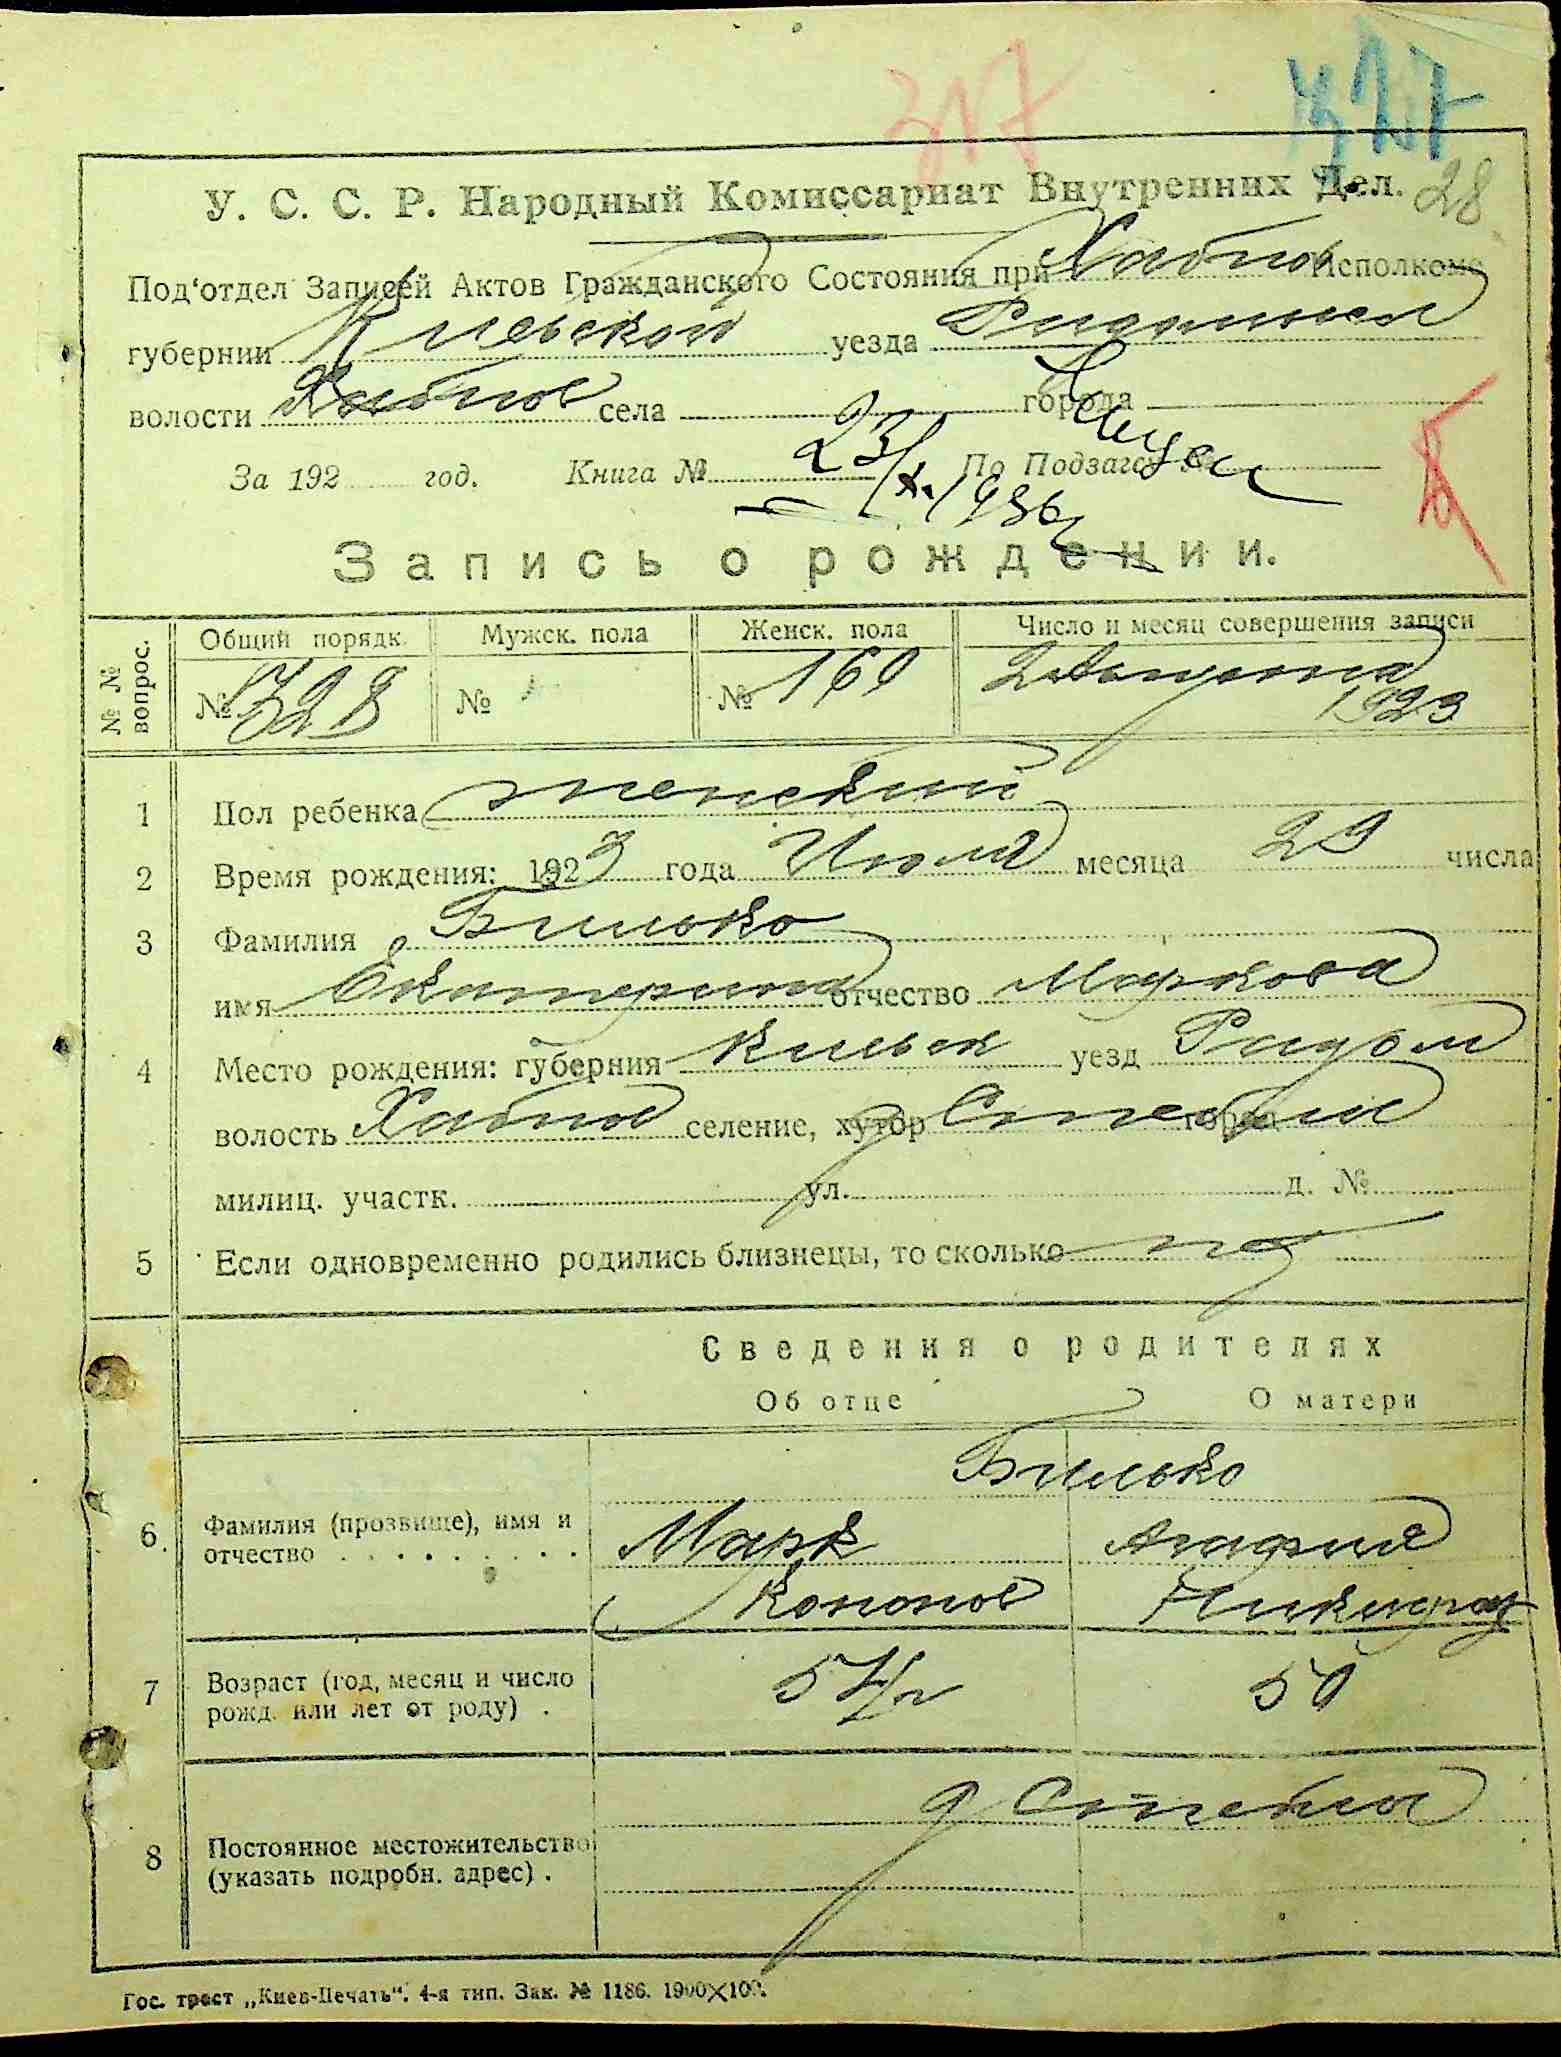 317 327
У. С. С. Р. Народный Комиссариат Внутренних Дел. 28
Под‘отдел Записей Актов Гражданского Состояния при Хабнов Исполкоме
губернии Киевской уезда
волости Хабнов села города
За 192 год. Книга № По Подзагсу №
23/X 1936
Запись о рождении.
№ № вопрос. Общий порядк. Мужск. пола Женск. пола Число и месяц совершения записи
№ 328 № № 160 2 Августа
1923
1 Пол ребенка женский
2 Время рождения: 1923 года Июля месяца 29 числа
3 Фамилия Билько
имя Екатерина отчество Маркова
4 Место рождения: губерния Киевск уезд Радом
волость Хабнов селение, хутор город
милиц. участк. ул. д. №
5 Если одновременно родились близнецы, то сколько
Сведения о родителях
Об отце О матери
Билько
6 Фамилия (прозвище), имя и Марк Агафия
отчество Кононов
7 Возраст (год, месяц и число 50
рожд. или лет от роду) .
8 Постоянное местожительство
(указать подробн. адрес) .
Гос. трест „Киев-Печать“. 4-я тип. Зак. № 1186. 1900×100.